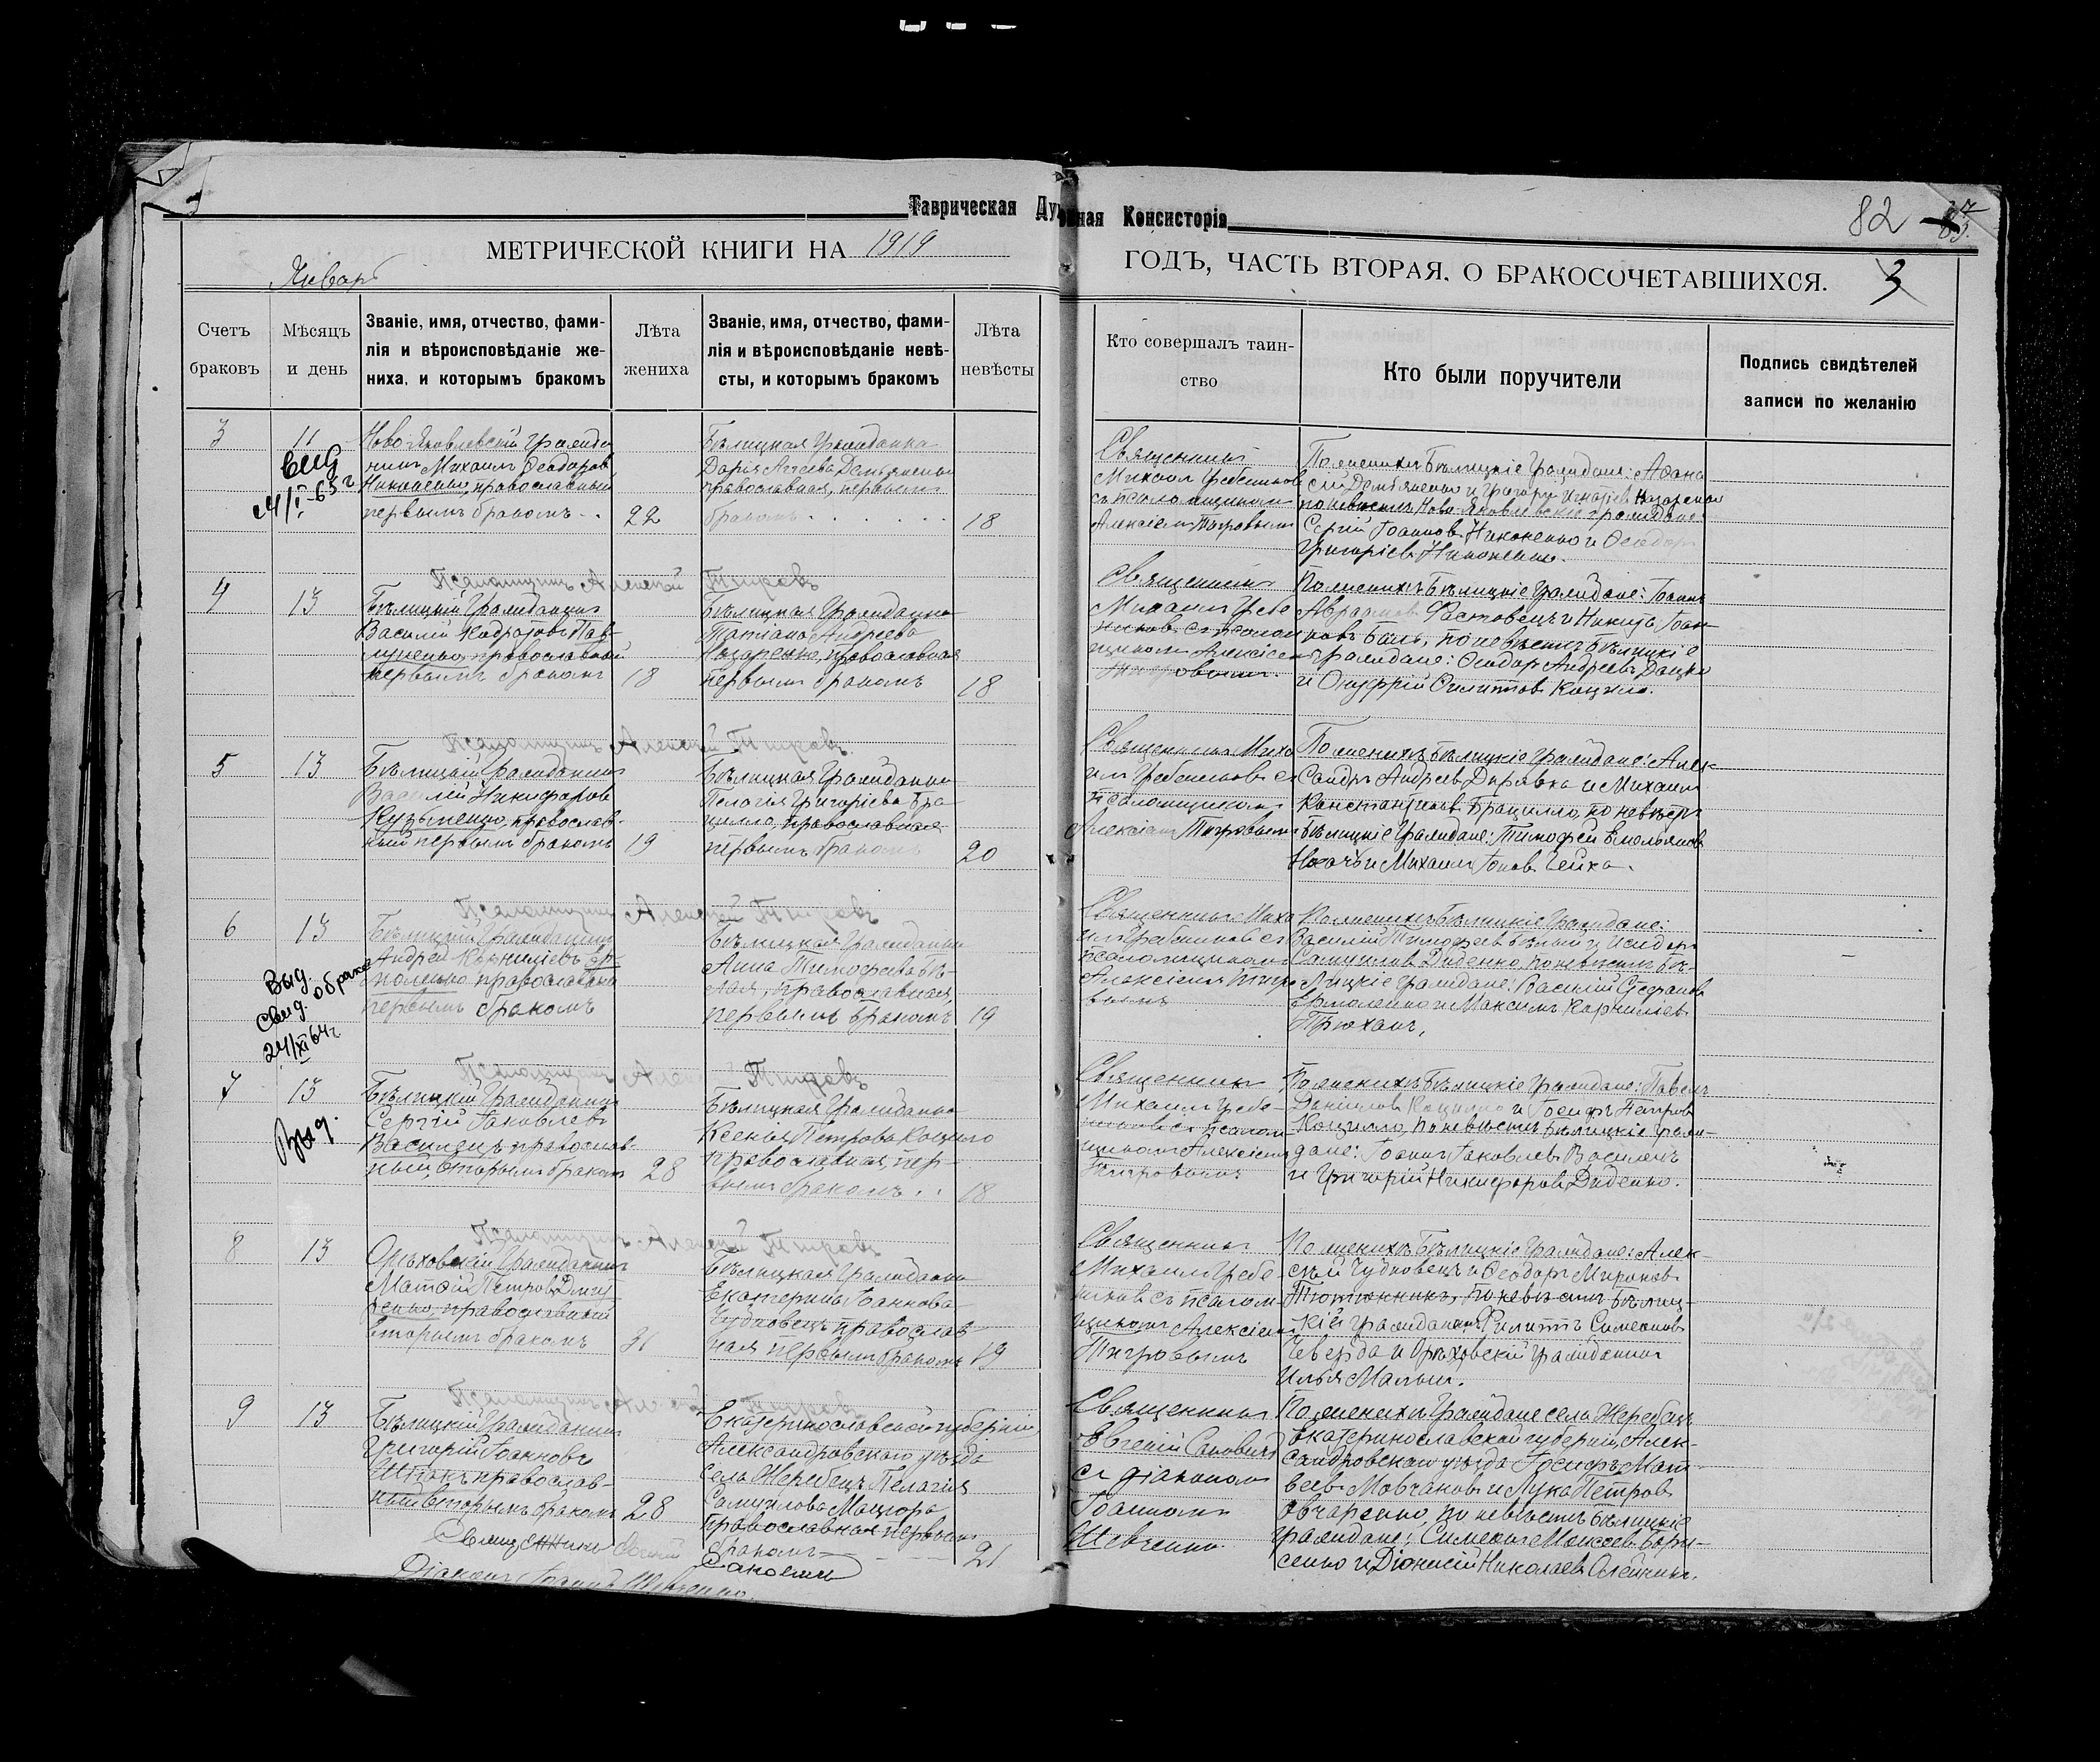 Таврическая Духовная Консисторія
82
МЕТРИЧЕСКОЙ КНИГИ НА 1919
ГОДЪ, ЧАСТЬ ВТОРАЯ, О БРАКОСОЧЕТАВШИХСЯ.
3
Январь
Счетъ браковъ
Мѣсяцъ и день
Званіе, имя, отчество, фами-
лія и вѣроисповѣданіе же-
ниха, и которымъ бракомъ
Лѣта жениха
Званіе, имя, отчество, фами-
лія и вѣроисповѣданіе невѣ-
сты, и которымъ бракомъ
Лѣта невѣсты
Кто совершалъ таин-
ство
Кто были поручители
Подпись свидѣтелей
записи по желанію
3
11
Ново-Яковлевскій гражда
нинъ Михаилъ Ѳеодоровъ
Никоненко, православный
первымъ бракомъ
22
Бѣлицкая гражданка
Дарья Демьяненко
православная, первымъ
бракомъ
18
Священникъ
Михаил Гребенников
съ псаломщикомъ
Алексіемъ Тигровымъ
По женихѣ Бѣлицкіе граждане: Аѳана
сій Демьяненко и Григорій Игнатіев Назаренко
по невѣстѣ Ново-Яковлевскіе граждане
Сергій Іоаннов Никоненко и Ѳеодор
Григоріев Никоненко.
Псаломщикъ Алексѣй Тигровъ
4
13
Бѣлицкій гражданинъ
Василій Пав-
православный
первымъ бракомъ
18
Бѣлицкая гражданка
Татіана Андреева
Назаренко, православная
первымъ бракомъ
18
Священникъ
Михаилъ Гребе
никовъ съ псалом
щиком Алексіем
Тигровымъ.
По женихѣ Бѣлицкіе граждане: Іоаннъ
Авраамов Фастовецъ и Никита Іоан-
новъ по невѣстѣ Бѣлицкіе
граждане: Ѳеодор Андреевъ Дацко
и Онуфрій Филиппов Коцило.
Псаломщикъ Алексѣй Тигровъ
5
13
Бѣлицкій гражданинъ
Василій Никифоров
Кузьменко, православ-
ный первымъ бракомъ
19
Бѣлицкая гражданка
Пелагія Григоріева Бра
цилло, православная
первымъ бракомъ
20
Священникъ Миха
илъ Гребенников съ
псаломщикомъ
Алексіем Тигровымъ
По женихѣ Бѣлицкіе граждане: Алек
сандръ Андреев Дирявка и Михаилъ
Константинов Брацилло, по невѣстѣ
Бѣлицкіе граждане: Тимофей Емельянов
и Михаилъ Іонов Чейка.
Псаломщикъ Алексѣй Тигровъ
6
13
Выд.
свид. о браке
24/XI 64г
Бѣлицкій гражданинъ
Андрей Корниліевъ Ер-
моленко православный
первымъ бракомъ
Бѣлицкая гражданка
Анна Тимофеева Бѣ-
лая, православная,
первымъ бракомъ
19
Священникъ Миха
илъ Гребенников съ
псаломщикомъ
Алексіемъ Тигро
вымъ
По женихѣ Бѣлицкіе граждане:
Василій Тимофеев Бѣлый и Исидоръ
Самуилов Диденко, по невѣстѣ Бѣ-
лицкіе граждане: Василій Стефанов
Ермоленко и Максимъ Корниліев
Трюхан,
Псаломщикъ Алексѣй Тигровъ
7
13
Выд.
Бѣлицкій гражданинъ
Сергій Іаковлевъ
Василецъ православ-
ный, вторымъ бракомъ
28
Бѣлицкая гражданка
Ксенія Петрова Коцило
православная, пер-
вымъ бракомъ
18
Священникъ
Михаилъ Гребе-
нников съ псалом
щикомъ Алексіем
Тигровымъ
По женихѣ Бѣлицкіе граждане: Павелъ
Даніилов Коцило и Іосифъ Петров
Коцилло, по невѣстѣ Бѣлицкіе граж-
дане: Іоаннъ Іаковлев Василецъ
и Григорій Никифоров Диденко.
Псаломщикъ Алексѣй Тигровъ
8
13
Орѣховскій гражданинъ
Матѳій Петров Дмит
ренко, православный
вторымъ бракомъ
31
Бѣлицкая гражданка
Екатерина Іоаннова
Чудновецъ православ
ная первымъ бракомъ
19
Священникъ
Михаилъ Гребе
ников съ псалом
щикомъ Алексіем
Тигровымъ
По женихѣ Бѣлицкіе граждане: Алек-
сѣй Чудновецъ и Ѳеодоръ Миронов
по невѣстѣ Бѣлиц-
кій гражданинъ Филиппъ Симеонов
Чеверда и Орѣховскій гражданинъ
Илья Малыш.
Псаломщикъ Алексѣй Тигровъ
9
13
Бѣлицкій гражданинъ
Григорій Іоанновъ
Шпакъ, православ-
ный вторымъ бракомъ
28
Екатеринославской губерніи
Александровскаго уѣзда
села Жеребецъ Пелагія
Самуилова Мацюра
православная первымъ
бракомъ
21
Священникъ
Евгеній Саковичъ
съ діаконом
Іоанномъ
Шевченко.
По женихѣ граждане села Жеребецъ
Екатеринославской губерніи, Алек-
сандровскаго уѣзда Іосифъ Мат-
веев Мовчанов и Лука Петров
Овчаренко, по невѣстѣ Бѣлицкіе
граждане: Симеонъ Моисеев Бори-
сенко и Діонисій Николаев Олейник.
Священникъ Евгеній Саковичъ
Діаконъ Іоаннъ Шевченко.